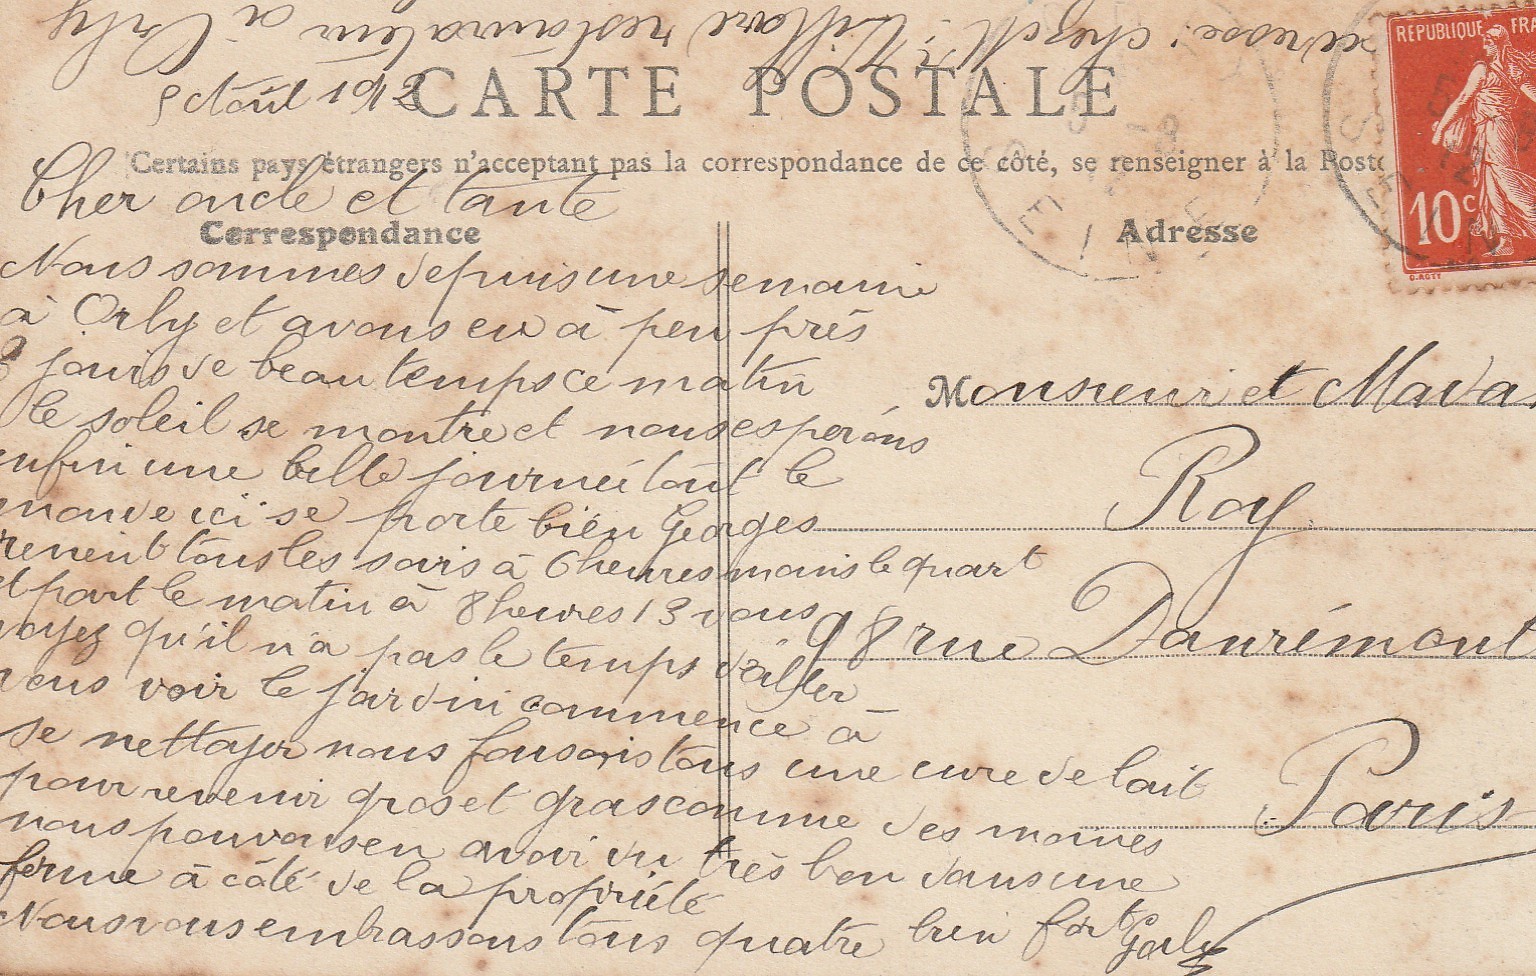 adresse: chez Mr restaurateur à Orly
5 Août 1912
CARTE POSTALE
Certains pays étrangers n'acceptant pas la correspondance de ce côté, se renseigner à la Poste
Cher oncle et tante
Correspondance
Adresse
REPUBLIQUE FRA
10c
Nous sommes depuis une semaine
à Orly et avons eu à peu près
3 jours de beau temps ce matin
le soleil se montre et nous espérons
enfin une belle journée tout le
monde ici se porte bien Georges
revient tous les soirs à 6 heures moins le quart
et part le matin à 8 heures 13 vous
voyez qu'il n'a pas le temps d'aller
vous voir le jardin commence à
se nettoyer nous faisons tous une cure de lait
pour revenir gros et gras comme des moines
nous pouvons en avoir du très bon dans une
ferme à côté de la propriété
Nous vous embrassons tous quatre bien fort
Monsieur et Mada
Roy
98 rue Damrémont
Paris